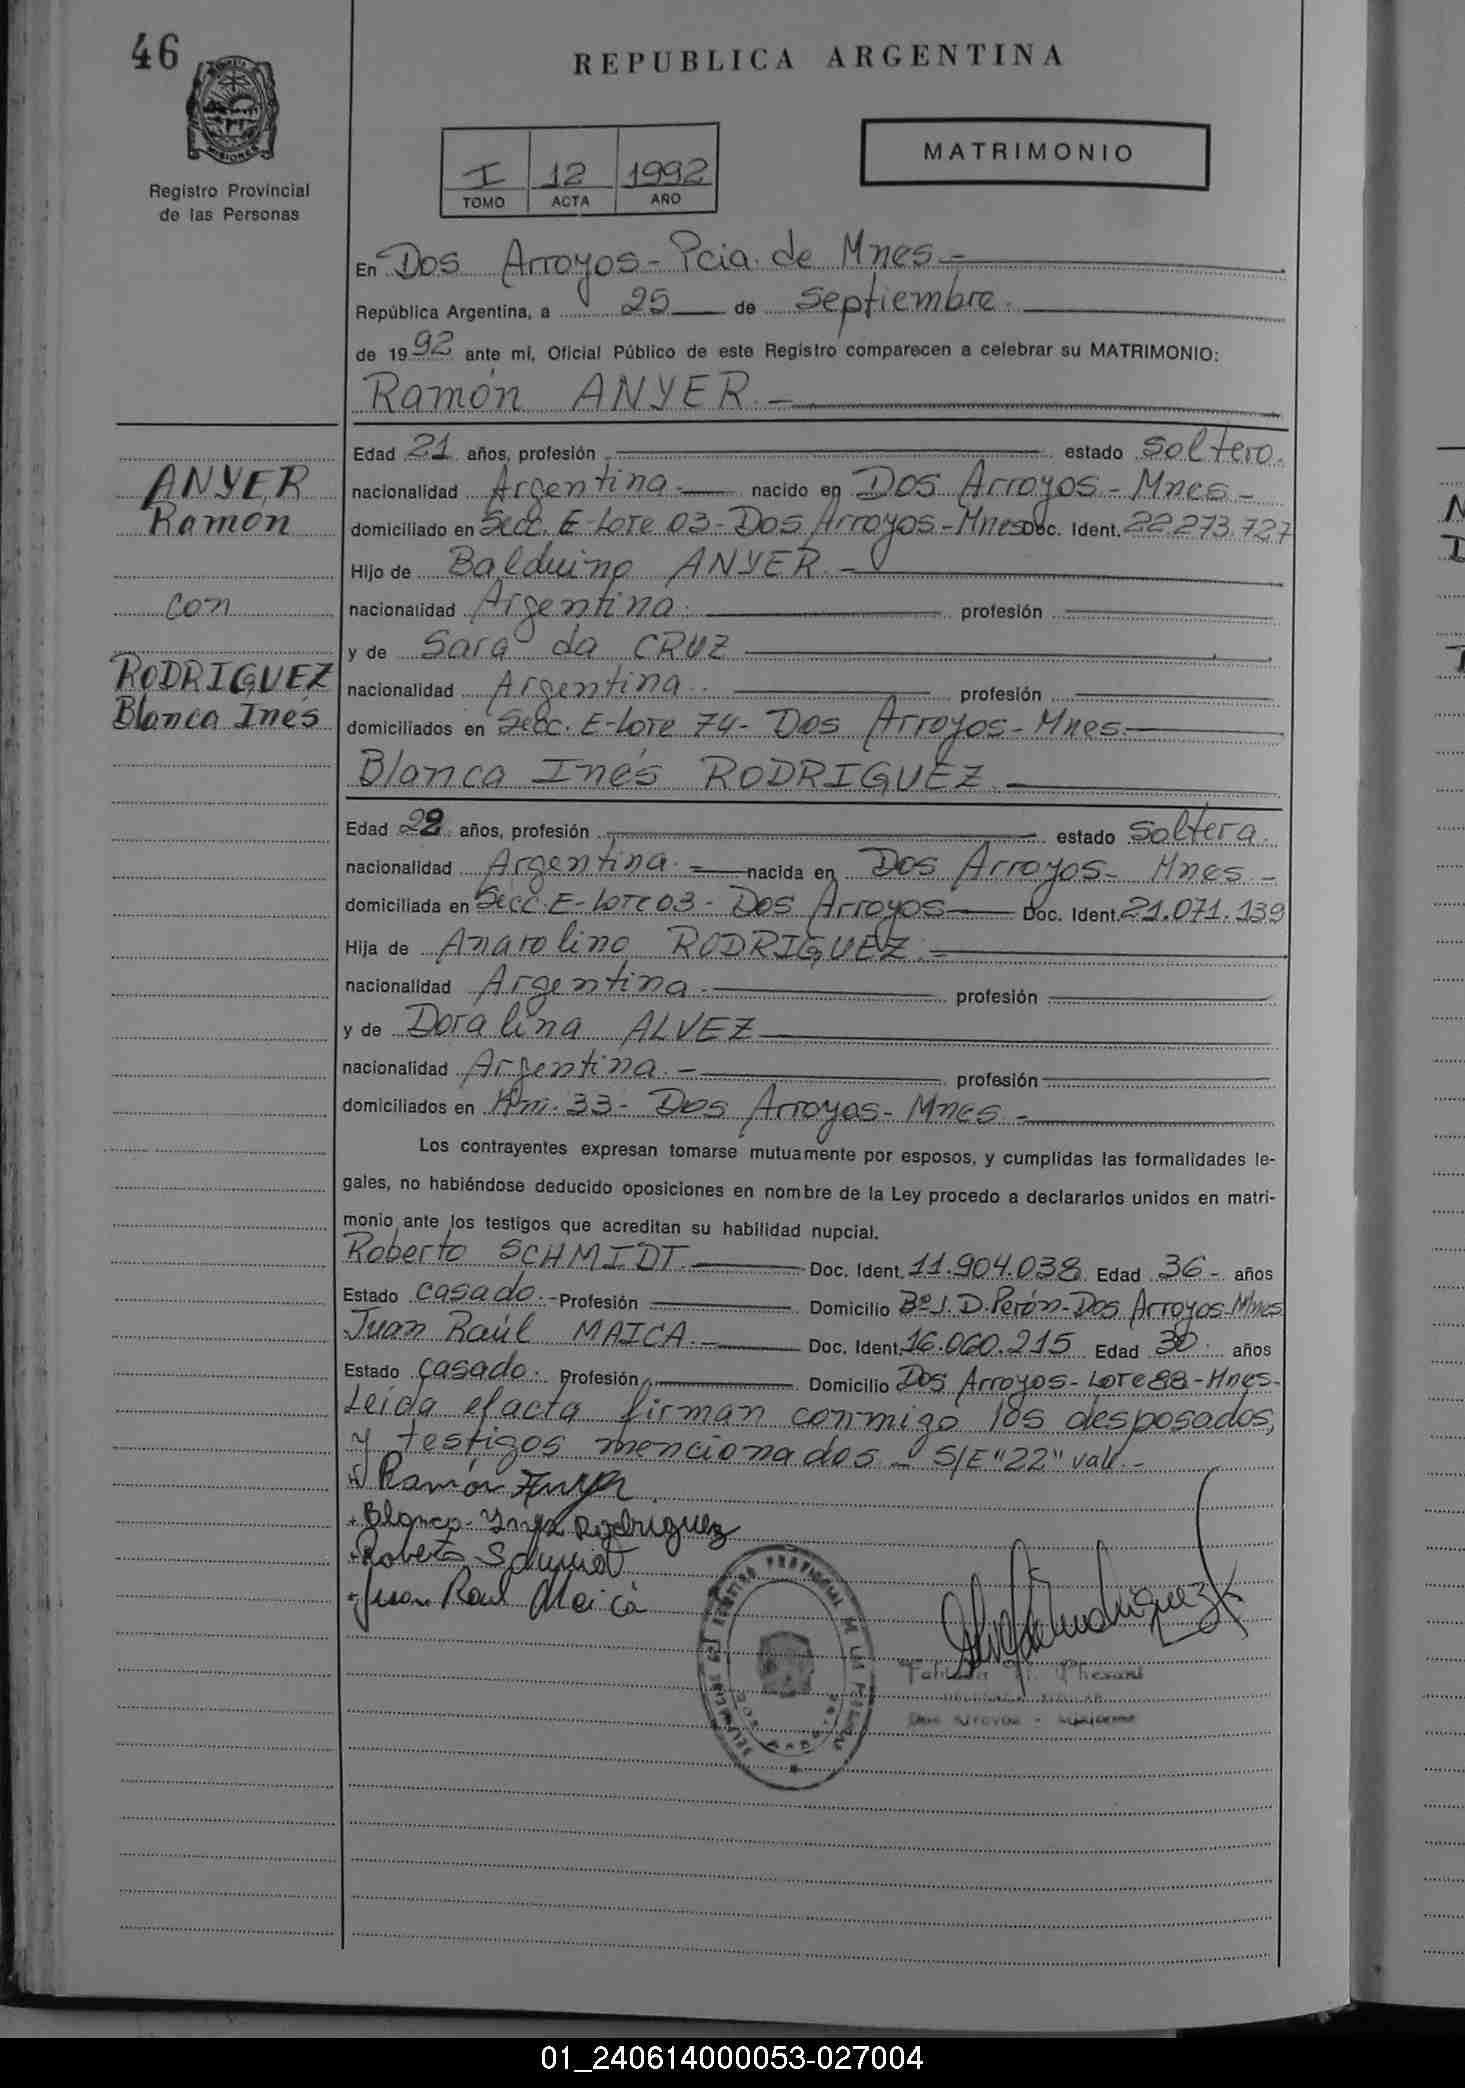 46
REPUBLICA ARGENTINA
MISIONES
Registro Provincial
de las Personas
I 12 1992
TOMO ACTA AÑO
MATRIMONIO
En Dos Arroyos - Pcia. de Mnes.-
República Argentina, a 25 de septiembre.
de 1992 ante mí, Oficial Público de este Registro comparecen a celebrar su MATRIMONIO:
Ramón ANYER.-
Edad 21 años, profesión estado soltero.
ANYER
Ramón
con
RODRIGUEZ
Blanca Inés
nacionalidad Argentina nacido en Dos Arroyos - Mnes -
domiciliado en Secc. E-Lote 03 - Dos Arroyos - Mnes Doc. Ident. 22.273.727
Hijo de Balduino ANYER.-
nacionalidad Argentina. profesión
y de Sara da CRUZ
nacionalidad Argentina. profesión
domiciliados en Secc. E-Lote 74 - Dos Arroyos - Mnes.
Blanca Inés RODRIGUEZ.
Edad 22 años, profesión estado soltera.
nacionalidad Argentina. nacida en Dos Arroyos - Mnes -
domiciliada en Secc. E-Lote 03 - Dos Arroyos Doc. Ident. 21.071.139
Hija de Anarolino RODRIGUEZ.-
nacionalidad Argentina. profesión
y de Doralina ALVEZ
nacionalidad Argentina.- profesión
domiciliados en Km. 33 - Dos Arroyos - Mnes.-
Los contrayentes expresan tomarse mutuamente por esposos, y cumplidas las formalidades le-
gales, no habiéndose deducido oposiciones en nombre de la Ley procedo a declararlos unidos en matri-
monio ante los testigos que acreditan su habilidad nupcial.
Roberto SCHMIDT. Doc. Ident. 11.904.038 Edad 36 - años
Estado casado.- Profesión Domicilio Bº J. D. Perón - Dos Arroyos - Mnes
Juan Raúl MAICA. Doc. Ident. 16.060.215 Edad 30. años
Estado casado. Profesión Domicilio Dos Arroyos - Lote 88 - Mnes -
Leída el acta firman conmigo los desposados,
y testigos mencionados - S/E "22" vale.-
Ramón Anyer
Blanca Ynes Rodriguez
Roberto Schmidt
Juan Raul Maica
REGISTRO PROVINCIAL DE LAS PERSONAS
01_240614000053-027004